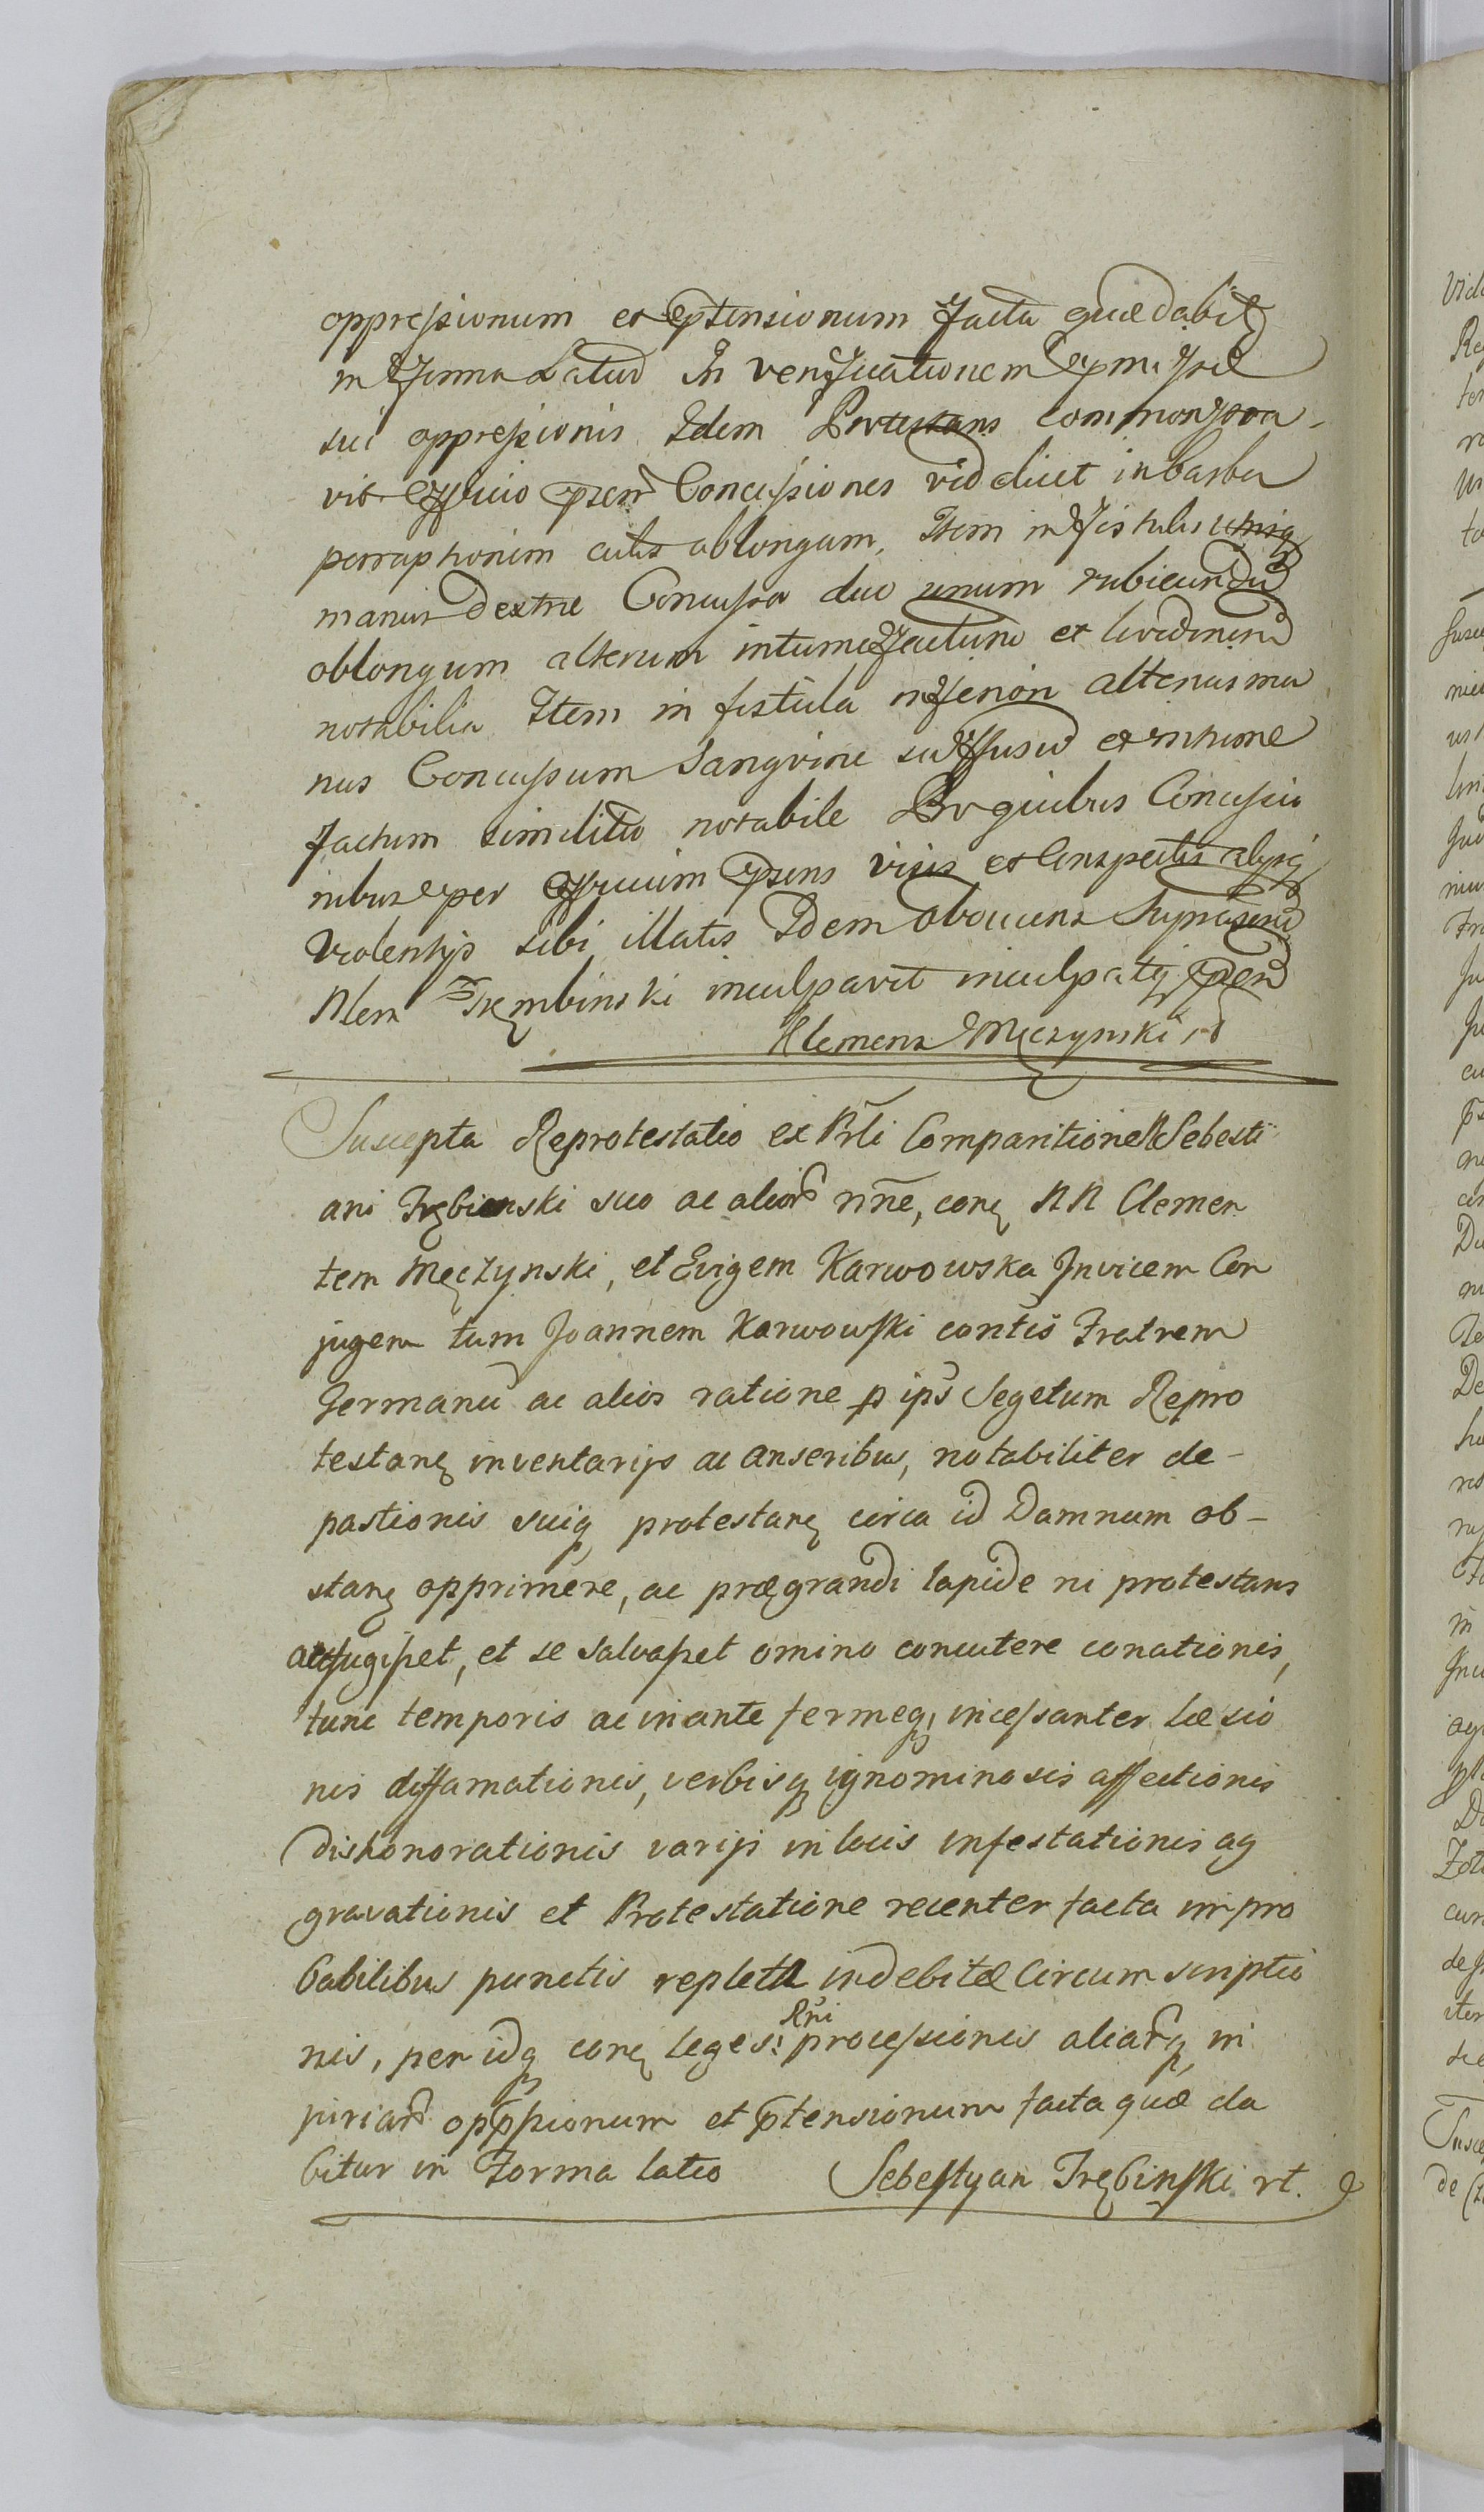 oppressionum et ptensionum facta quæ dabit
in forma Latiũ In verificationem pmissæ
sui oppressionis Idem Protestans commonstra-
vit officio psen Concussiones videlicet in barba
per raptionem cutis oblongam, Item in fistula
manus dextræ Concussa duo unum rubicundũ
oblongum alterum intumefactum et lividinem
notabilia Item in fistula inferiori alterius ma
nus Concussum Sangvine suffusũ et intume
factum similiter notabile Pro quibus Concussio
nibus per officium psens visis et conspectis alysq
violentijs sibi illatis Idem obducens supra
Nlem Trembinski inculpavit inculpatq psen
Klemens Męczynski
Suscepta Reprotestatio ex Prli Comparitione N Sebesti
ani Trębinski suo ac alior nne, con NN Clemen
tem Męczynski, et Evigem Karwowska Invicem Con
jugem tum Joannem Karwowski contis Fratrem
Germanũ ac alios ratione p ips Segetum Repro
testan inventarijs ac anseribus, notabiliter de-
pastionis suiq protestan circa id Damnum ob-
stan opprimere, ac prægrandi lapide ni protestans
aufugisset, et se salvasset omino concutere conationis,
tunc temporis ac in ante fermeq incessanter læsio
nis diffamationis, verbisq ignominosis affectionis
dishonorationis varijs in locis infestationis ag
gravationis et Protestatione recenter facta impro
babilibus punctis repleta indebitæ Circumscriptio
nis, per idq con leges Rni processionis aliarq in
juriar oppssionum et ptensionum facta quæ da
bitur in Forma latio Sebestyan Trębinski